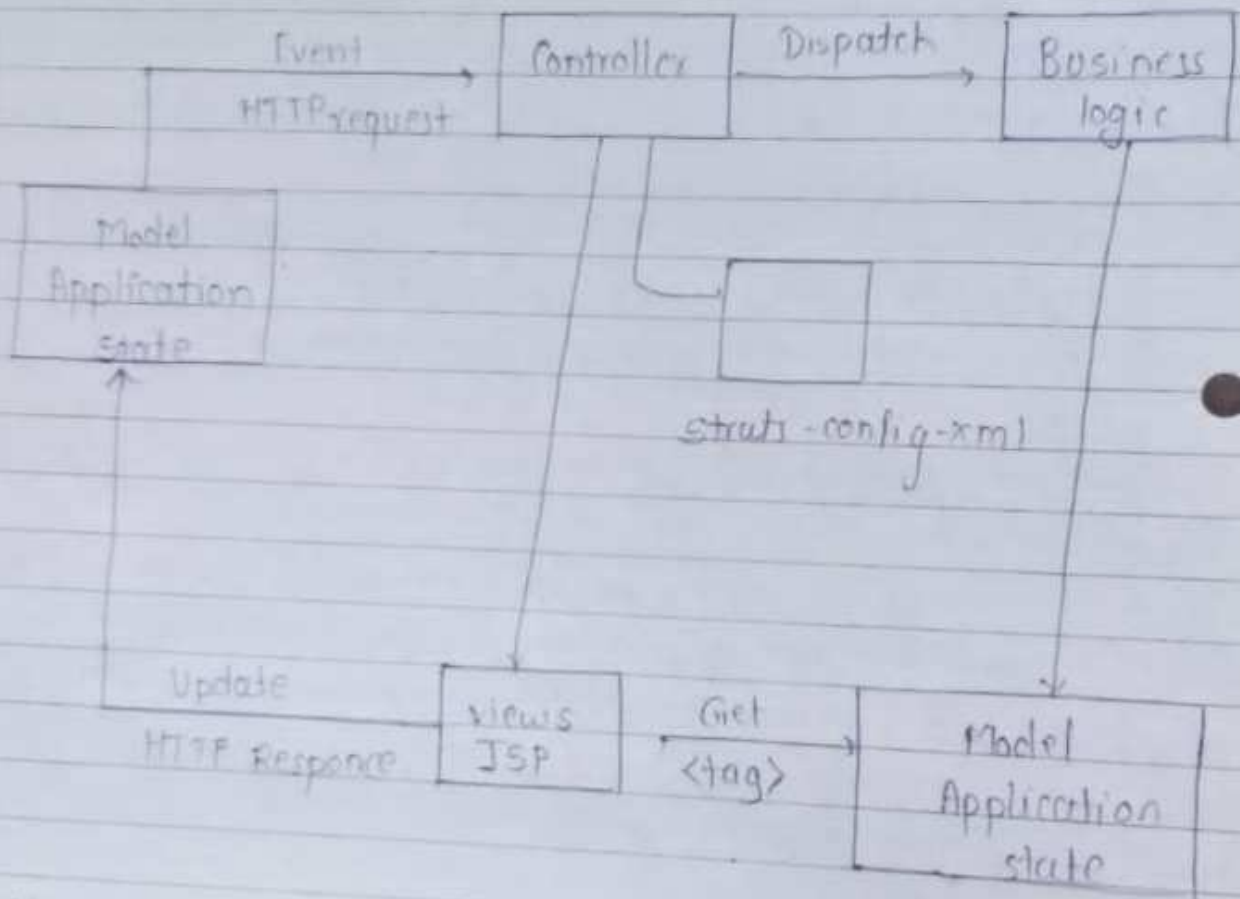 Event
HTTP request
Controller
Dispatch
Business
logic
Model
Application
state
struts-config-xml
Update
HTTP Responce
views
JSP
Get
<tag>
Model
Application
state